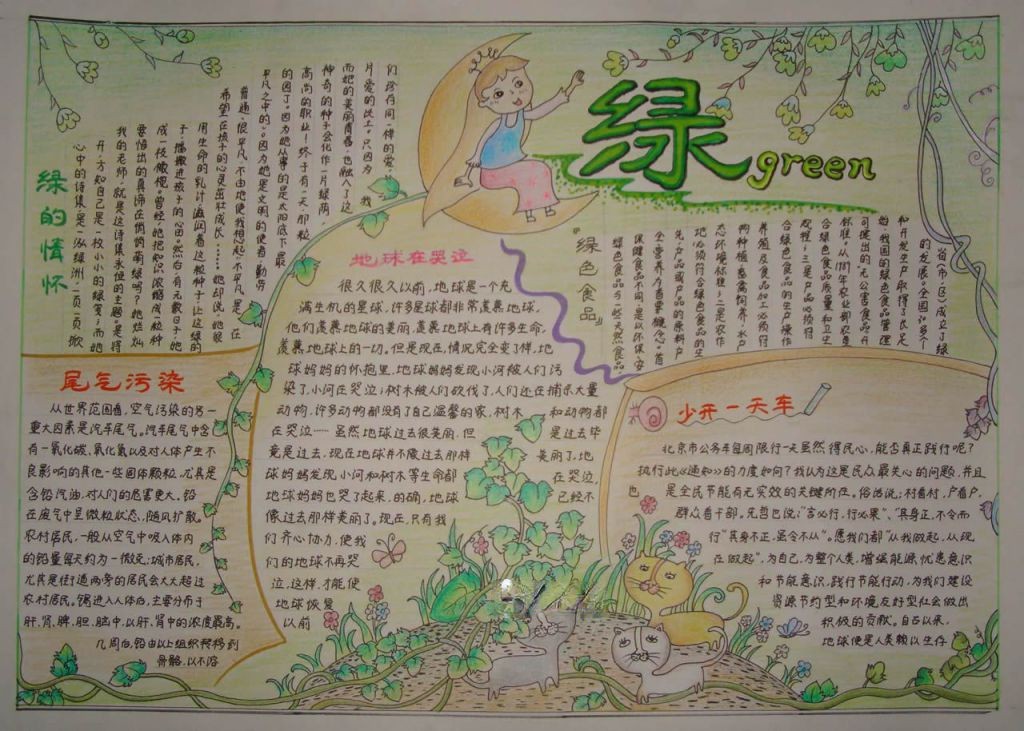 绿 green
绿的情怀
心中的诗集是一泓绿洲,一页一页掀
开,方知自己是一枚小小的绿芽;而她
我的老师,就是这诗集永恒的主题。是得
要悟出的真谛在悄悄萌绿吗?她把灿
成一枝橄榄。曾经,她把知识浓缩成一粒种
子,播撒进孩子的心田。然后,有无数日子,她
用生命的乳汁,滋润着这粒种子,让这绿的
希望在孩子的心灵茁壮成长……她却说,她很
普通,很平凡。不由地使我想起:不平凡是,在
平凡之中的。因为她是文明的使者,勤劳
的园丁。因为她从事的是太阳底下最
高尚的职业!终于有一天,那粒
神奇的种子会化作一片绿荫,
而她的美丽青春,也融入了这
片爱的沃土。只因为,我
们珍存同一样的爱。
地球在哭泣
很久很久以前,地球是一个充
满生机的星球,许多星球都非常羡慕地球,
他们羡慕地球的美丽,羡慕地球上有许多生命,
羡慕地球上的一切。但是现在,情况完全变了样,地
球妈妈的怀抱里,地球妈妈发现小河被人们污
染了,小河在哭泣;树木被人们砍伐了,人们还在捕杀大量
动物,许多动物都没有了自己温馨的家,树木和动物都
在哭泣……虽然地球过去很美丽,但是过去毕
竟是过去,现在地球并不像过去那样美丽了,地
球妈妈发现小河和树木等生命都在哭泣,
地球妈妈也哭了起来,的确,地球已经不
像过去那样美丽了。现在,只有我
们齐心协力,使我
们的地球不再哭
泣,这样,才能使
地球恢复
以前
『绿色食品』
绿色食品与一些天然食品、
保健食品不同,是以环保、安
全、营养为首要概念。首
先,产品或产品的原料产
地必须符合绿色食品的生
态环境标准;二是农作
物种植、畜禽饲养、水产
养殖及食品加工必须符
合绿色食品的生产操作
规程;三是产品必须符
合绿色食品质量和卫生
标准。从1989年农业部农垦
司提出的“无公害食品”开
始,我国的绿色食品管理
和开发生产取得了长足
的发展。全国30多个
省(市、区)成立了绿
尾气污染
从世界范围看,空气污染的另一
重大因素是汽车尾气。汽车尾气中含
有一氧化碳、氧化氮以及对人体产生不
良影响的其他一些固体颗粒,尤其是
含铅汽油,对人们的危害更大。铅
在废气中呈微粒状态,随风扩散。
农村居民,一般从空气中吸入体内
的铅量每天约为一微克;城市居民,
尤其是街道两旁的居民会大大超过
农村居民。铅进入人体后,主要分布于
肝、肾、脾、胆、脑中,以肝、肾中的浓度最高。
几周后,铅由以上组织转移到
骨骼,以不溶
少开一天车
北京市公务车每周限行一天虽然得民心,能否真正践行呢?
执行此《通知》的力度如何?我认为这是民众最关心的问题,并且
也是全民节能有无实效的关键所在。俗话说:村看村,户看户,
群众看干部。先哲也说:“言必行,行必果”、“其身正,不令而
行”“其身不正,虽令不从”。愿我们都“从我做起,从现
在做起”,为自己,为整个人类,增强能源忧患意识
和节能意识,践行节能行动,为我们建设
资源节约型和环境友好型社会做出
积极的贡献。自古以来,
地球便是人类赖以生存